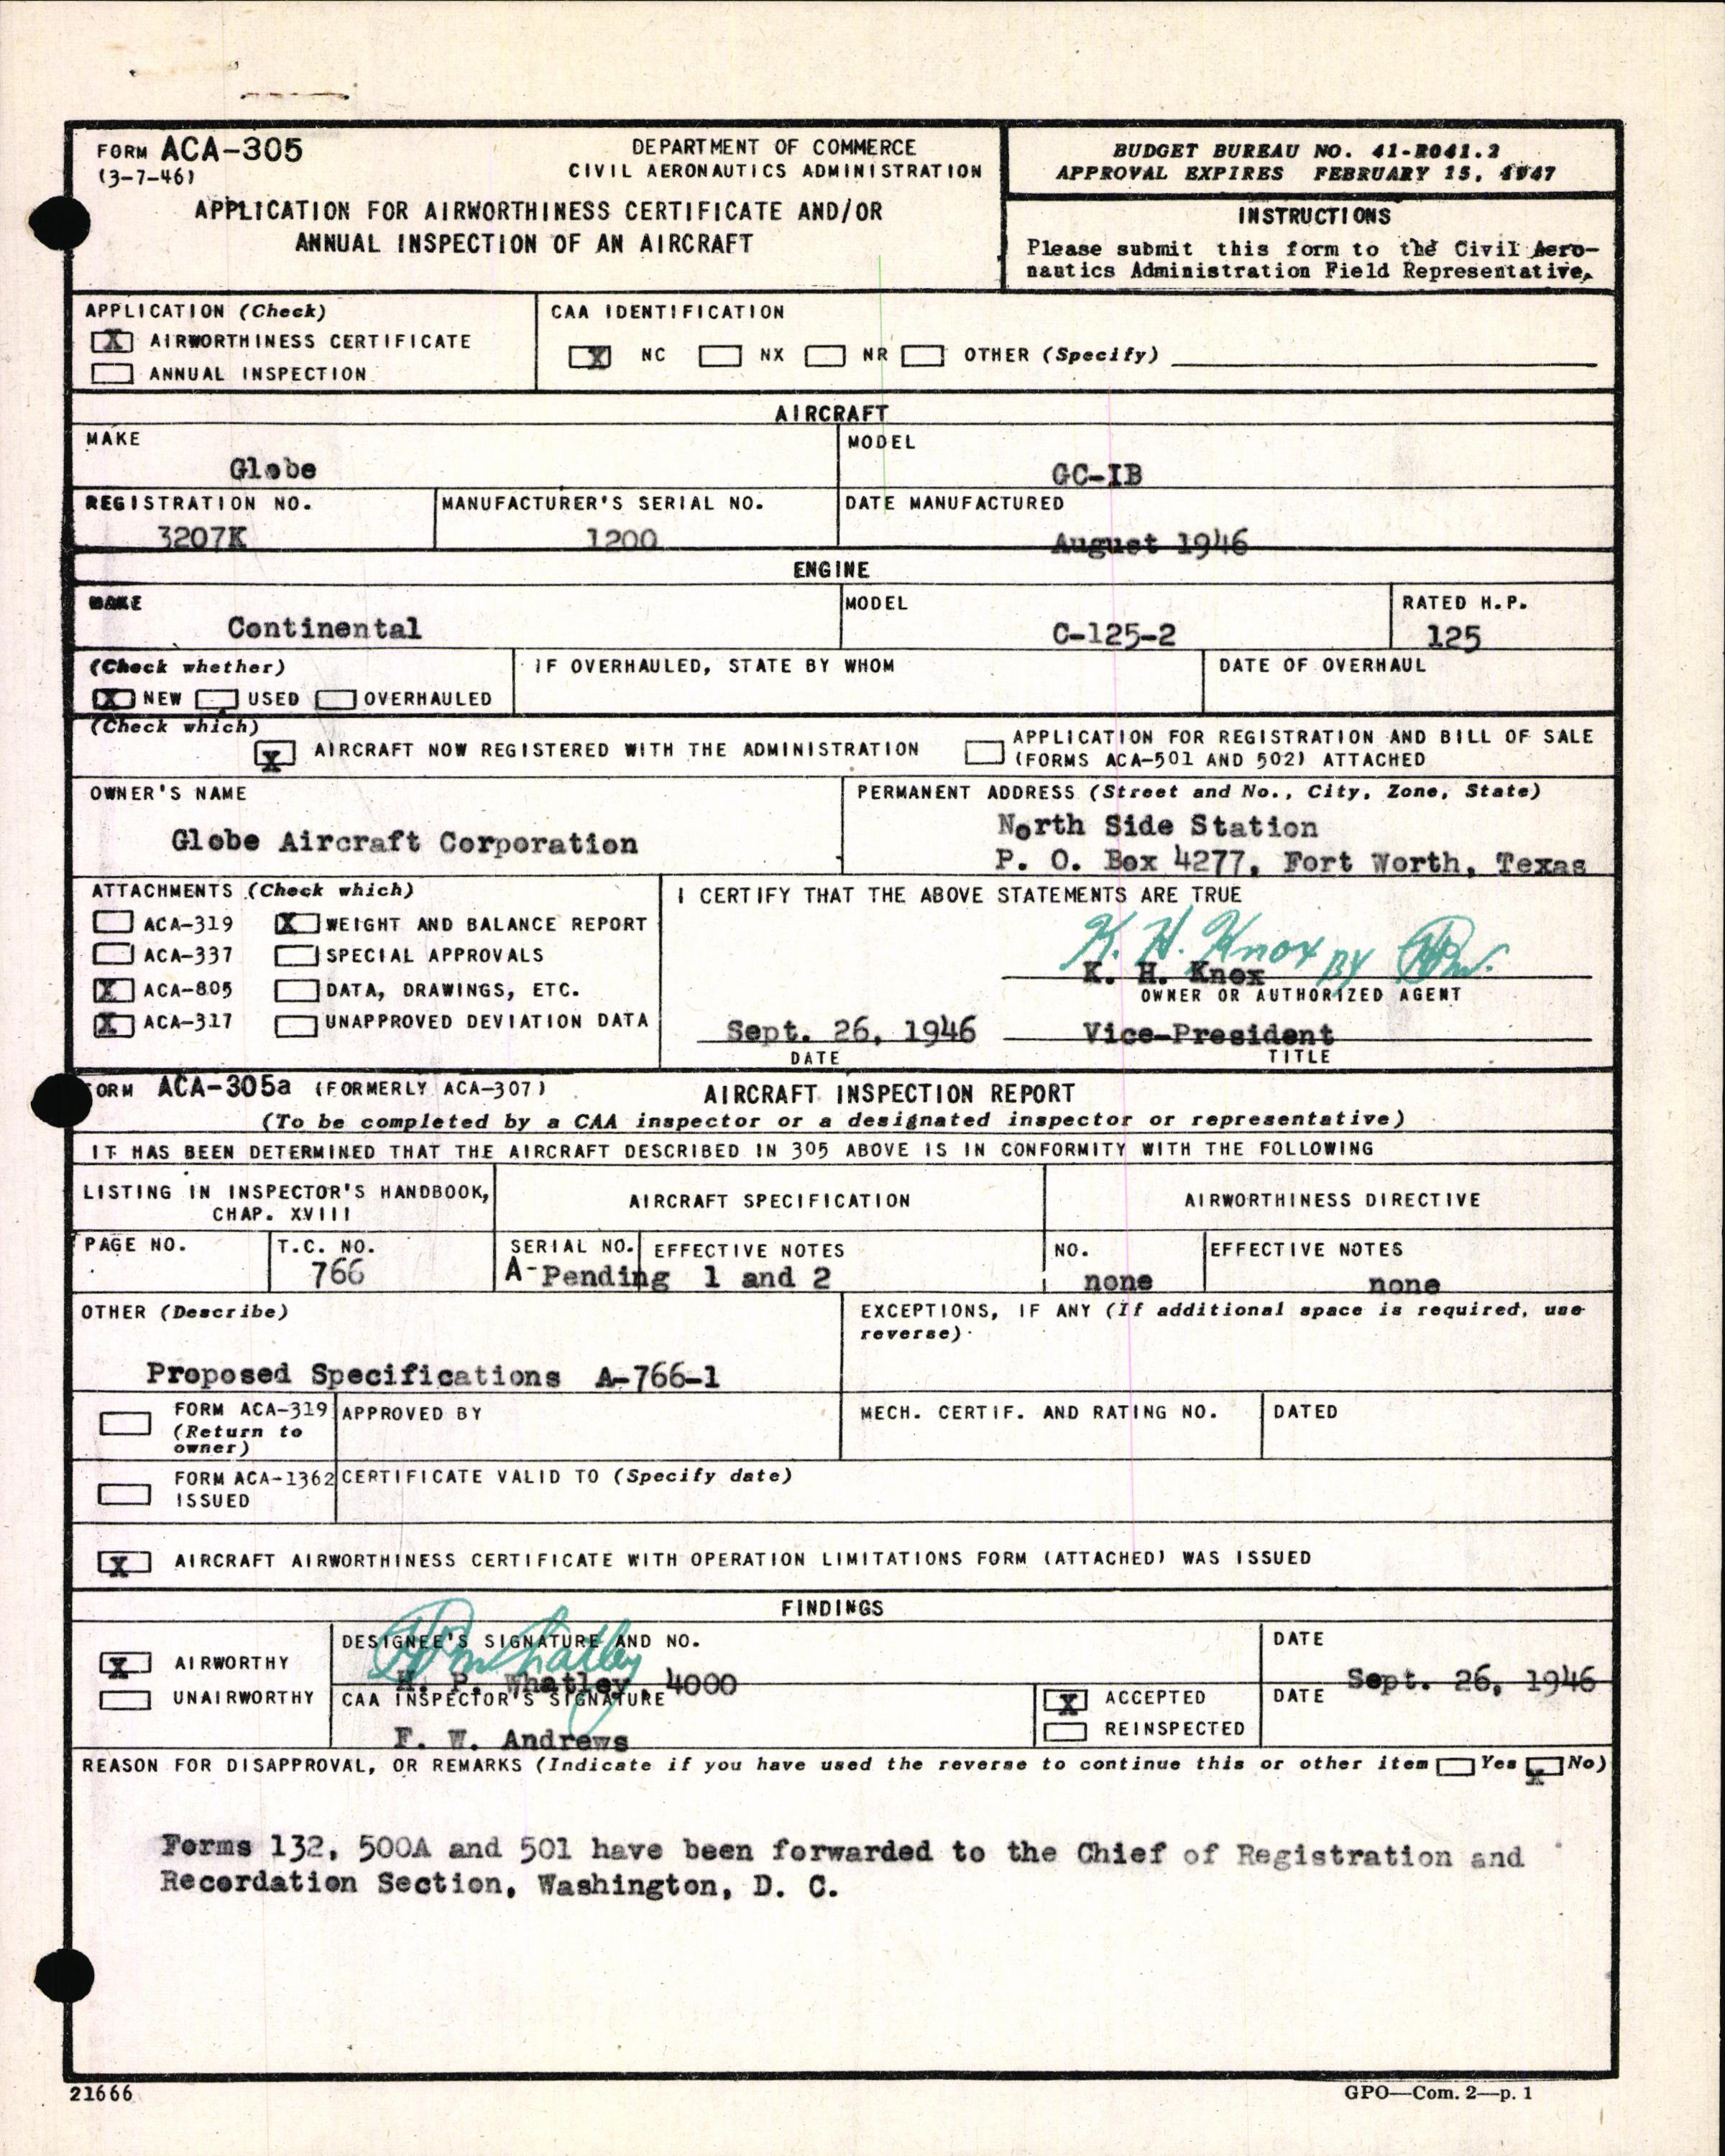 FORM ACA-305
(3-7-46)
DEPARTMENT OF COMMERCE
CIVIL AERONAUTICS ADMINISTRATION
APPLICATION FOR AIRWORTHINESS CERTIFICATE AND/OR
ANNUAL INSPECTION OF AN AIRCRAFT
BUDGET BUREAU NO. 41-R041.2
APPROVAL EXPIRES FEBRUARY 15, 1947
INSTRUCTIONS
Please submit this form to the Civil Aero-
nautics Administration Field Representative.
APPLICATION (Check)
X AIRWORTHINESS CERTIFICATE
ANNUAL INSPECTION
CAA IDENTIFICATION
X NC NX NR OTHER (Specify)
AIRCRAFT
MAKE
Globe
MODEL
GC-IB
REGISTRATION NO.
3207K
MANUFACTURER'S SERIAL NO.
1200
DATE MANUFACTURED
August 1946
ENGINE
MAKE
Continental
MODEL
C-125-2
RATED H.P.
125
(Check whether)
X NEW USED OVERHAULED
IF OVERHAULED, STATE BY WHOM
DATE OF OVERHAUL
(Check which)
X AIRCRAFT NOW REGISTERED WITH THE ADMINISTRATION
APPLICATION FOR REGISTRATION AND BILL OF SALE
(FORMS ACA-501 AND 502) ATTACHED
OWNER'S NAME
Globe Aircraft Corporation
PERMANENT ADDRESS (Street and No., City, Zone, State)
North Side Station
P. O. Box 4277, Fort Worth, Texas
ATTACHMENTS (Check which)
ACA-319 X WEIGHT AND BALANCE REPORT
ACA-337 SPECIAL APPROVALS
X ACA-805 DATA, DRAWINGS, ETC.
X ACA-317 UNAPPROVED DEVIATION DATA
I CERTIFY THAT THE ABOVE STATEMENTS ARE TRUE
K. H. Knox BY HPW.
K. H. Knox
OWNER OR AUTHORIZED AGENT
Sept. 26, 1946
DATE
Vice-President
TITLE
FORM ACA-305a (FORMERLY ACA-307)
AIRCRAFT INSPECTION REPORT
(To be completed by a CAA inspector or a designated inspector or representative)
IT HAS BEEN DETERMINED THAT THE AIRCRAFT DESCRIBED IN 305 ABOVE IS IN CONFORMITY WITH THE FOLLOWING
LISTING IN INSPECTOR'S HANDBOOK,
CHAP. XVIII
AIRCRAFT SPECIFICATION
AIRWORTHINESS DIRECTIVE
PAGE NO.
T.C. NO.
766
SERIAL NO.
EFFECTIVE NOTES
A-Pending 1 and 2
NO.
none
EFFECTIVE NOTES
none
OTHER (Describe)
Proposed Specifications A-766-1
EXCEPTIONS, IF ANY (If additional space is required, use
reverse)
FORM ACA-319
(Return to
owner)
APPROVED BY
MECH. CERTIF. AND RATING NO.
DATED
FORM ACA-1362
ISSUED
CERTIFICATE VALID TO (Specify date)
X AIRCRAFT AIRWORTHINESS CERTIFICATE WITH OPERATION LIMITATIONS FORM (ATTACHED) WAS ISSUED
FINDINGS
X AIRWORTHY
UNAIRWORTHY
DESIGNEE'S SIGNATURE AND NO.
HP Whatley
H. P. Whatley, 4000
DATE
Sept. 26, 1946
CAA INSPECTOR'S SIGNATURE
F. W. Andrews
X ACCEPTED
REINSPECTED
DATE
REASON FOR DISAPPROVAL, OR REMARKS (Indicate if you have used the reverse to continue this or other item Yes X No)
Forms 132, 500A and 501 have been forwarded to the Chief of Registration and
Recordation Section, Washington, D. C.
21666
GPO—Com. 2—p. 1